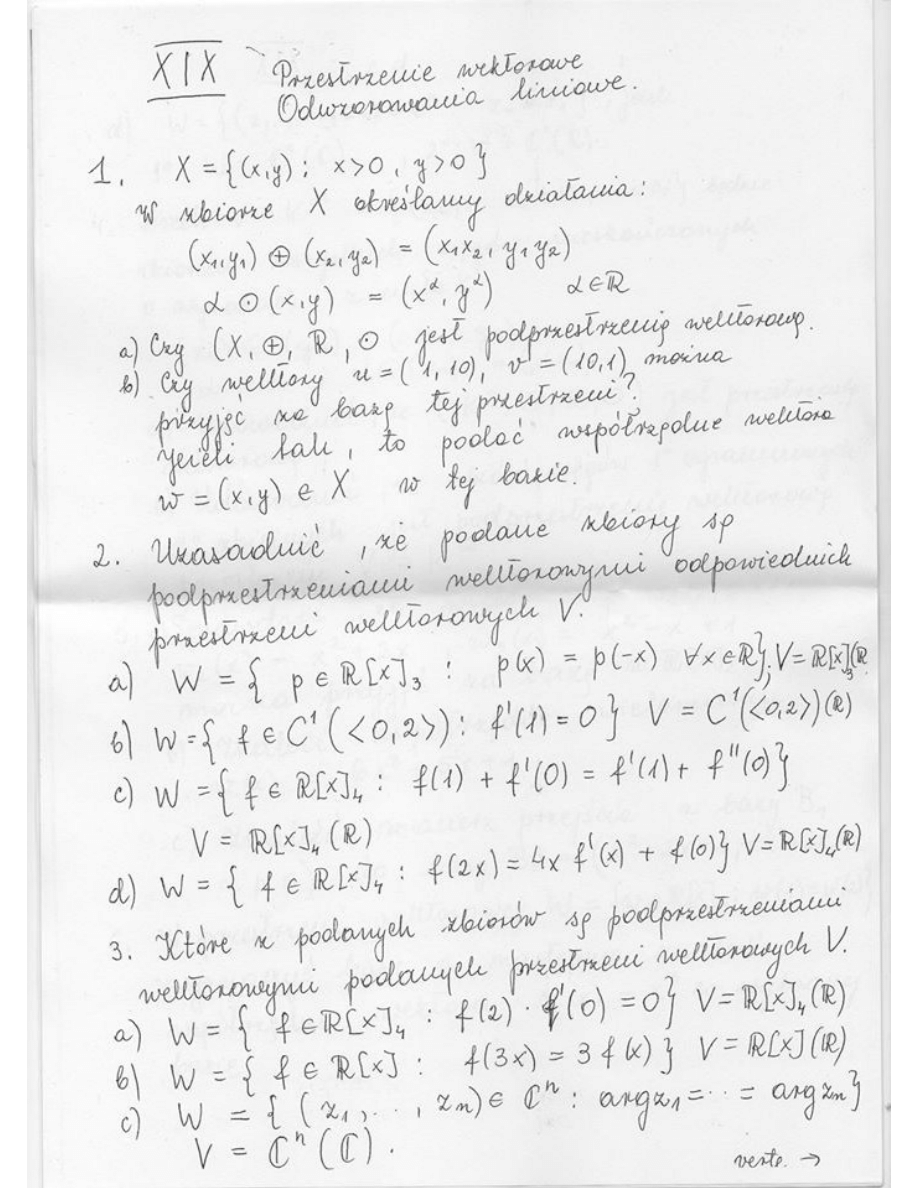 XIX Przestrzenie wektorowe
Odwzorowania liniowe.
1. X = {(x,y) : x>0, y>0}
W zbiorze X określamy działania:
(x₁,y₁) ⊕ (x₂,y₂) = (x₁x₂, y₁y₂)
α ⊙ (x,y) = (x^α, y^α) α∈ℝ
a) Czy (X, ⊕, ℝ, ⊙ jest podprzestrzenią wektorową.
b) Czy wektory u = (1, 10), v = (10,1) można
przyjąć za bazę tej przestrzeni?
Jeżeli tak, to podać współrzędne wektora
w = (x,y) ∈ X w tej bazie.
2. Uzasadnić, że podane zbiory są
podprzestrzeniami wektorowymi odpowiednich
przestrzeni wektorowych V.
a) W = { p ∈ ℝ[x]₃ : p(x) = p(-x) ∀x∈ℝ}; V=ℝ[x]₃(ℝ
b) W={ f ∈ C¹(<0,2>) : f'(1) = 0 } V = C¹(<0,2>)(ℝ)
c) W = { f ∈ ℝ[x]₄ : f(1) + f'(0) = f'(1) + f''(0)}
V = ℝ[x]₄(ℝ)
d) W = { f ∈ ℝ[x]₄ : f(2x) = 4x f'(x) + f(0)} V=ℝ[x]₄(ℝ)
3. Które z podanych zbiorów są podprzestrzeniami
wektorowymi podanych przestrzeni wektorowych V.
a) W = { f ∈ℝ[x]₄ : f(2) · f'(0) = 0} V=ℝ[x]₄(ℝ)
b) W = { f ∈ ℝ[x] : f(3x) = 3 f(x) } V = ℝ[x](ℝ)
c) W = { (z₁, ..., zₙ) ∈ ℂⁿ : arg z₁ = ... = arg zₙ}
V = ℂⁿ(ℂ).
verte. →